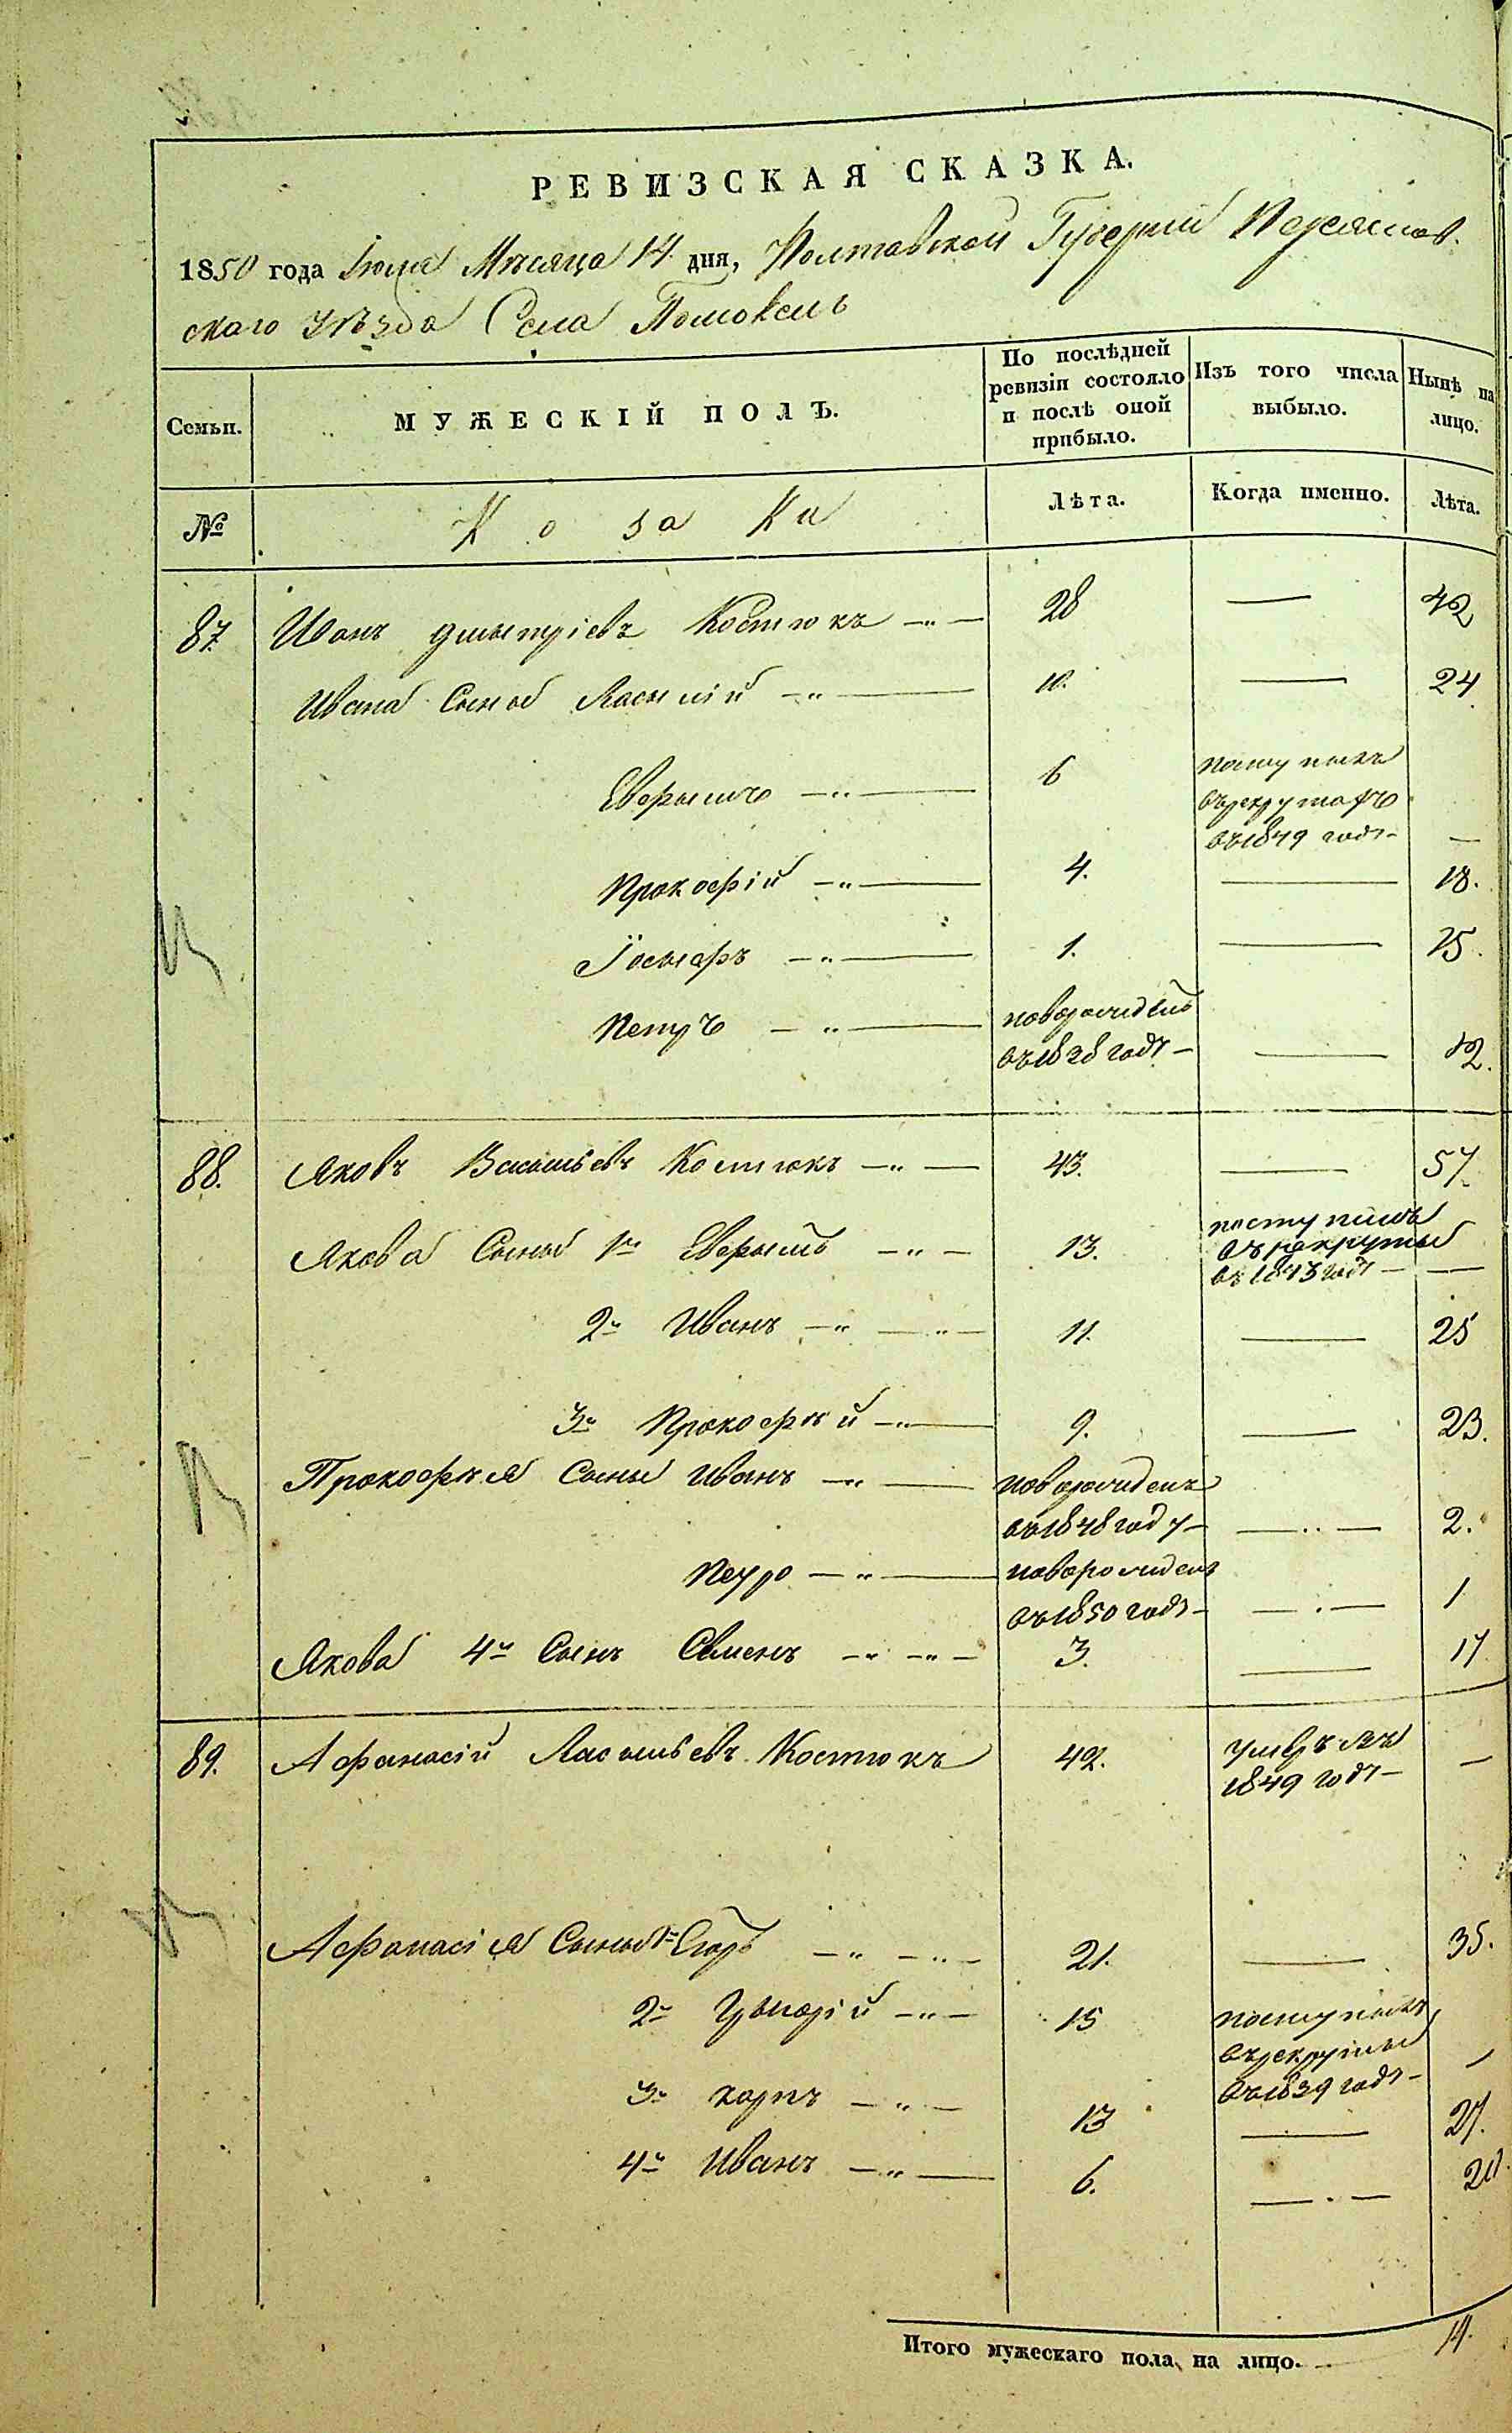 РЕВИЗСКАЯ СКАЗКА.
1850 года Іюля Мѣсяца 14 дня, Полтавской Губерніи Переяслов-
скаго уѣзда Села Помокель
Семьи. МУЖЕСКІЙ ПОЛЪ. По послѣдней ревизіи состояло и послѣ оной прибыло. Изъ того числа выбыло. Нынѣ на лицо.
№ Козаки Лѣта. Когда именно. Лѣта.
87. Иванъ Дмытріевъ Костюкъ 28 — 42
Ивана Сыны Васылій 10. — 24
Еврысть 6 поступилъ
въ рекруты
въ 1849 годѣ — —
Прокофій 4. — 18.
Іосыфъ 1. — 15.
Петръ новорожденъ
въ 1838 годѣ — — 12.
88. Яковъ Васыльевъ Костюкъ 43. — 57.
Якова Сыны 1й 13. поступилъ
въ рекруты
въ 1843 годѣ — —
2й Иванъ 11. — 25
3й Прокофій 9. — 23.
Прокофія Сыны Иванъ новорожденъ
въ 1848 году — — 2.
Петро новорожденъ
въ 1850 годѣ — — 1
Якова 4й Сынъ Семенъ 3. — 17
89. Афанасій Васыльевъ Костюкъ 42. умеръ въ
1849 годѣ — —
Афанасія Сыны 1й Егоръ 21. — 35.
2й Грыгорій 15 поступилъ
въ рекруты
въ 1839 годѣ — —
3й Карпъ 13 — 27.
4й Иванъ 6. — 20.
Итого мужескаго пола на лицо. 14.